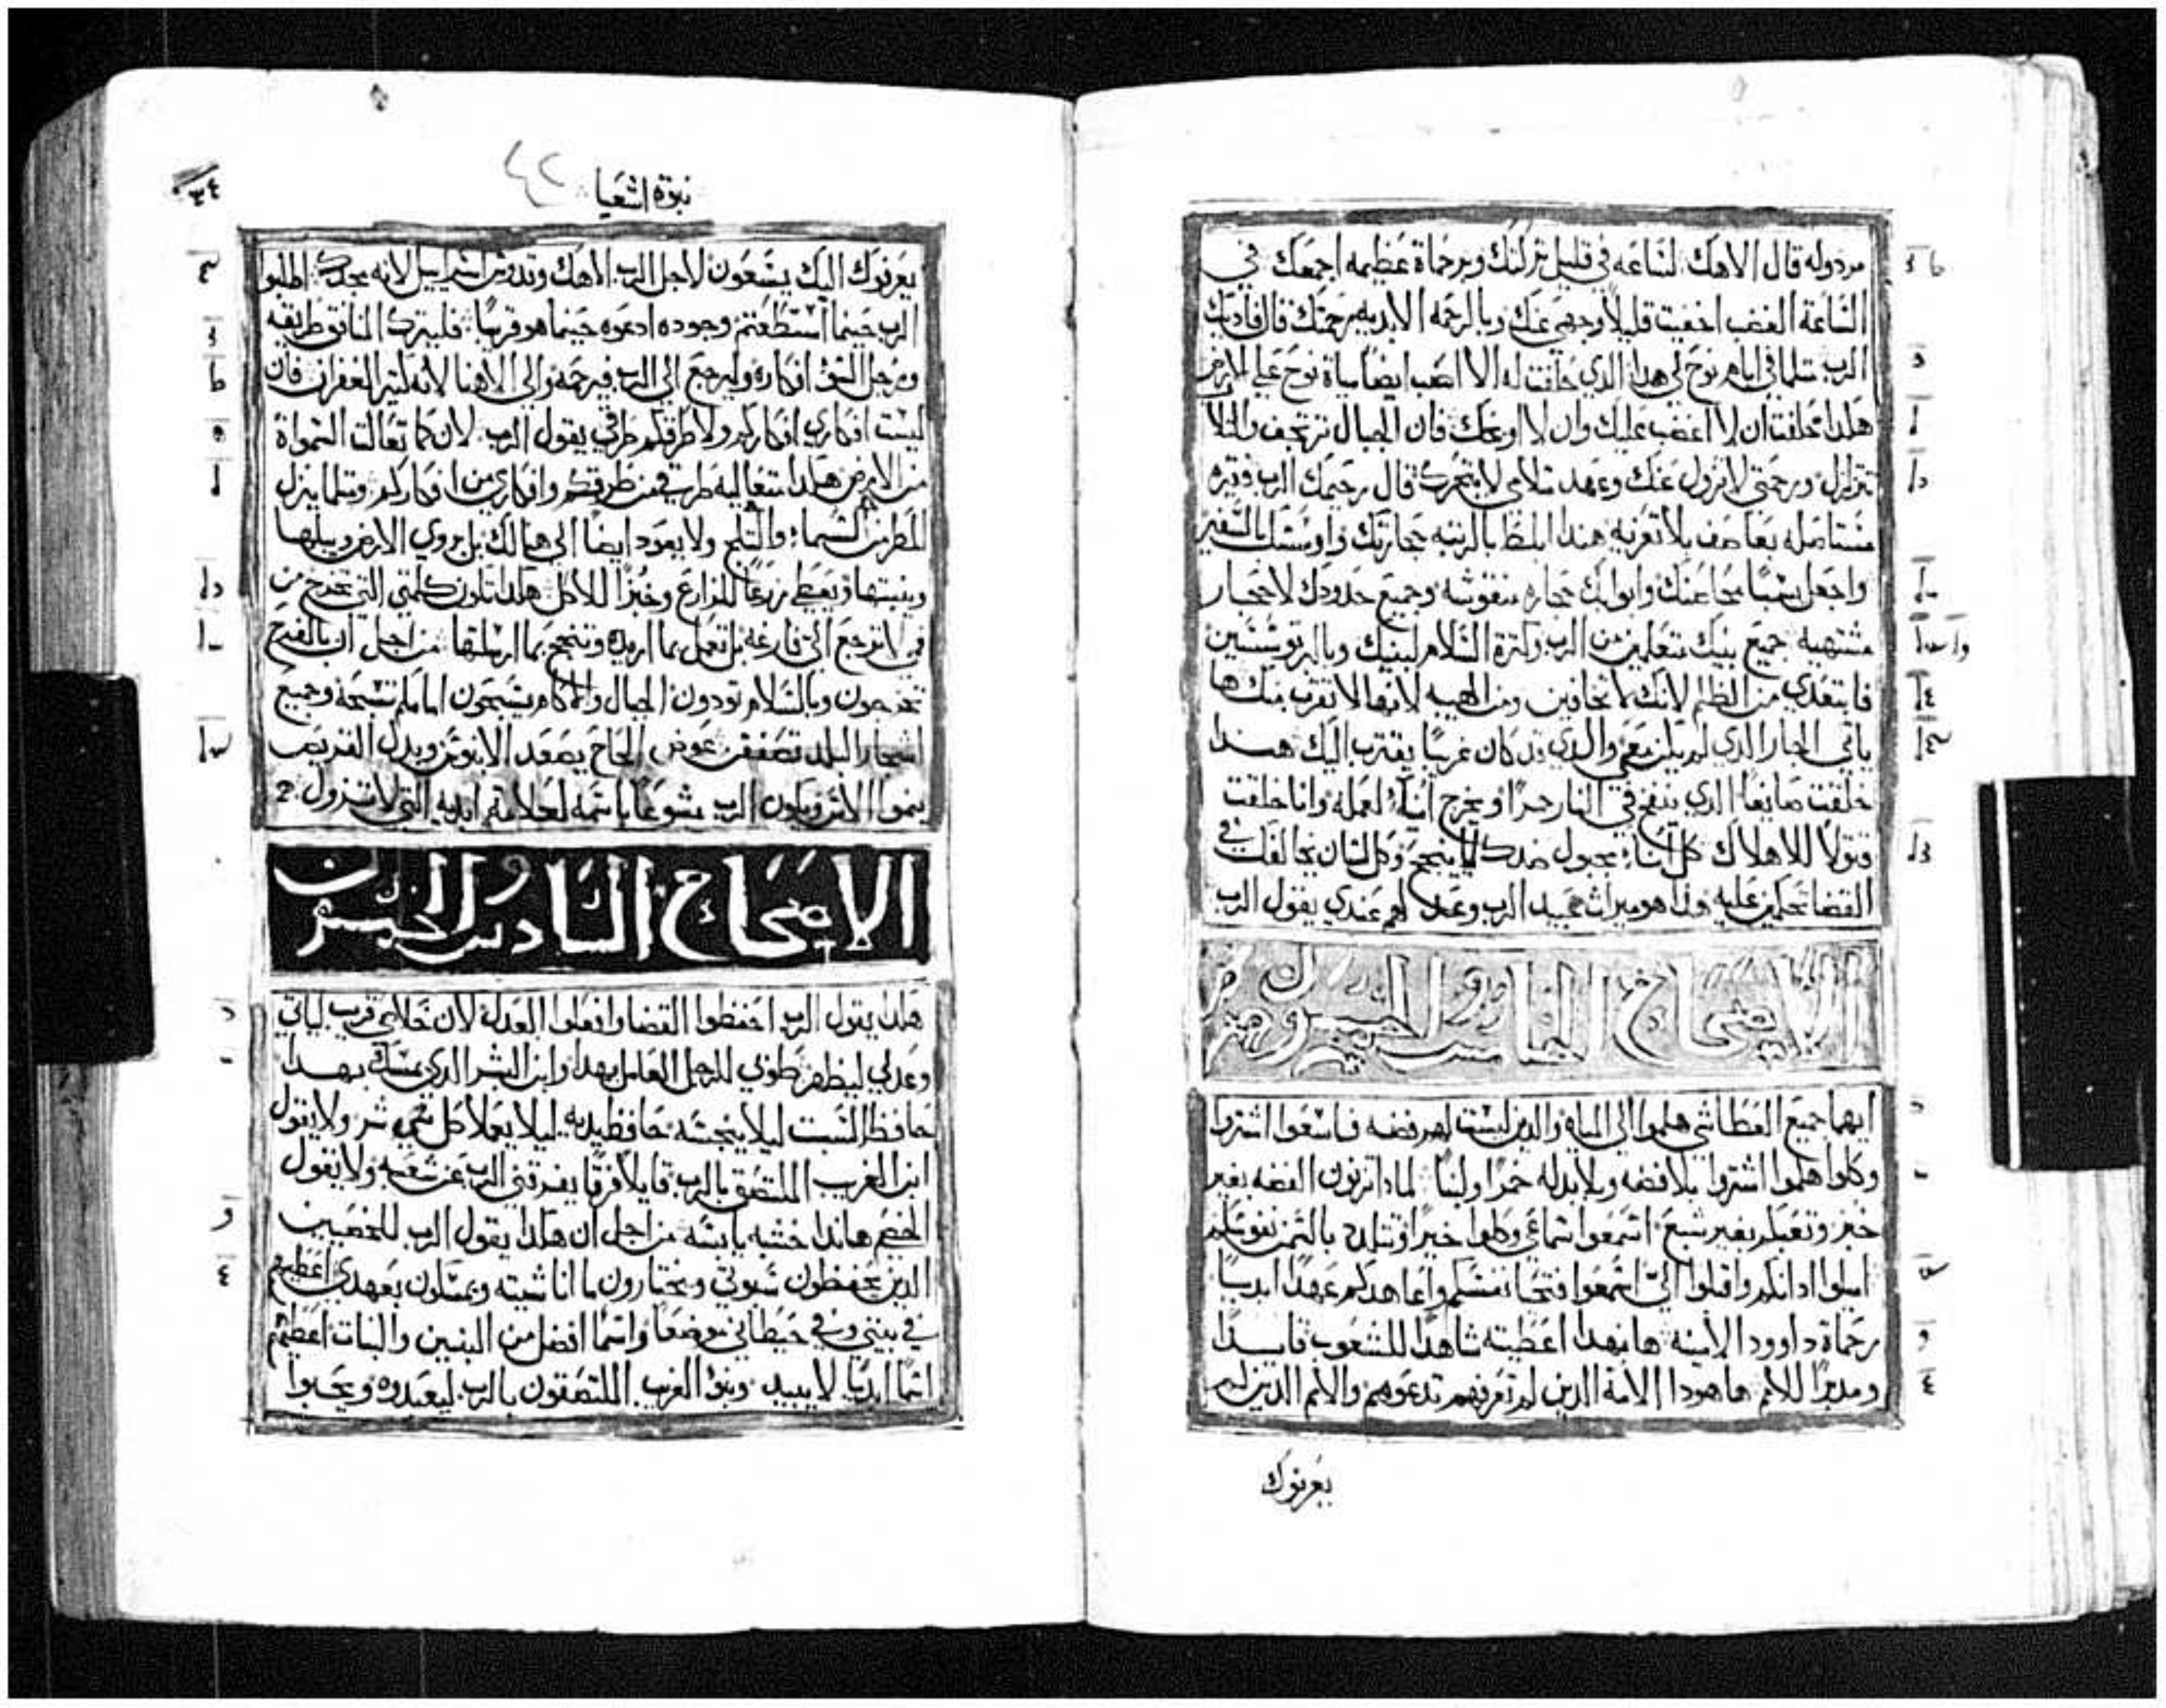 مردوله قال الاهك لساعه في قليل تركتك وبرحماة عظيمه اجمعك في
الساعة الغضب اخفيت قليلا وجهي عنك وبالرحمه الابديه رحمتك قال فاديك
الرب مثلما في ايام نوح لي هدا الدي حلفت له الا اصب ايضا مياة نوح علي الارض
هكدا حلفت ان لا اغضب عليك وان لا اوبخك فان الجبال ترتجف والتلال
تتزلزل ورحمتي لا تزول عنك وعهد سلامي لا يتحرك قال رحيمك الرب فقيره
مستاصله بعاصف بلا تعزيه هندا ابلط بالرتبه حجارتك واوسسك بالسفير
واجعل يشبا محاعنك وابوابك حجاره منقوشه وجميع حدودك لاحجار
مشتهيه جميع بنيك متعلمين من الرب وكترة السلام لبنيك وبالبر توسسين
فابتعدي من الظلم لانك لا تخافين ومن الهيبه لانها لا تقرب منك ها
ياتي الجار الدي لم يكن معي والدي قد كان غريبا يقترب اليك هندا
خلقت صايغا الدي ينفخ في النار جمرا ويخرج انية لعمله وانا خلقت
قتولا للاهلاك كل انا مجبول ضدك لا ينجح وكل لسان يخالفك في
القضا تحكمين عليه هدا هو ميرات عبيد الرب وعدلهم عندي يقول الرب
الاصحاح الخامس والخمسون
ايها جميع العطاشي هلموا الي المياه والدين ليست لهم فضه فاسعوا اشتروا
وكلوا هلموا اشتروا بلا فضه وبلا بدله خمرا ولبنا لمادا تزنون الفضه بغير
خبز وتعبكم بغير شبع اسمعوا سماعي وكلوا خيرا وتتلدد بالتمن نفوسكم
اميلوا ادانكم واقبلوا الي اسمعوا فتحيا نفسكم واعاهدكم عهدا ابديا
رحماة داوود الامينه هانهدا اعطيته شاهدا للشعوب قايدا
ومدبرا للامم ها هودا الامة الدين لم تعرفهم تدعوهم والامم الدين لم
يعرفوك
نبوة اشعيا
يعرفوك اليك يسعون لاجل الرب الاهك وقدوس اسراييل لانه مجدك اطلبوا
الرب حينما استطعتم وجوده ادعوه حينما هو قريبا فليترك المنافق طريقه
ورجل السو افكاره وليرجع الي الرب فيرحمه والي الاهنا لانه كتير الغفران فان
ليست افكاري افكاركم ولا طرقكم طرقي يقول الرب لان كما تعالت السمواة
من الارض هكدا متعاليه طرقي من طرقكم وافكاري من افكاركم ومتلما ينزل
المطر من السماء والتلج ولا يعود ايضا الي هنالك بل يروي الارض ويبلها
وينبتها ويعطي زرعا للزارع وخبزا للاكل هكدا تكون كلمتي التي تخرج من
في لا ترجع الي فارغه بل تعمل بما اريده وتنجح بما ارسلتها من اجل ان بالفرح
تخرجون وبالسلام تودون الجبال والاكام يسبحون امامكم تسبحة وجميع
اشجار البلد تصفق عوض الحاج يصعد الابنوش وبدل القريص
ينموا الاس ويكون الرب يشوعا باسمه لعلامة ابديه التي لا تزول
الاصحاح السادس والخمسون
هكدا يقول الرب احفظوا القضا وافعلوا العدل لان خلاصي قرب لياتي
وعدلي ليظهر طوبي للرجل العامل بهدا وابن البشر الدي يمسك بهدا
حافظ السبت ليلا ينجسه حافظ يديه ليلا يعملا كل شي شر ولا يقول
ابن الغريب الملتصق بالرب قايلا فرقا يفرقني الرب عن شعبه ولا يقول
الخصي هاندا خشبه يابسه من اجل ان هكدا يقول الرب للخصيين
الدين يحفظون سبوتي ويختارون ما انا شيته ويمسكون بعهدي اعطيهم
في بيتي وفي حيطاني موضعا واسما افضل من البنين والبنات اعطيهم
اسما ابديا لا يبيد وبنو الغريب الملتصقون بالرب ليعبدوه ويحبوا